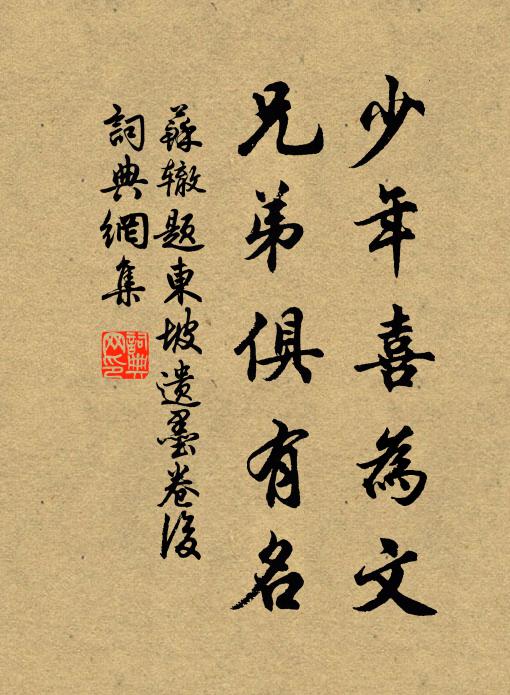 少年喜為文
兄弟俱有名
蘇轍題東坡遺墨卷後
詞典網集
詞典網印